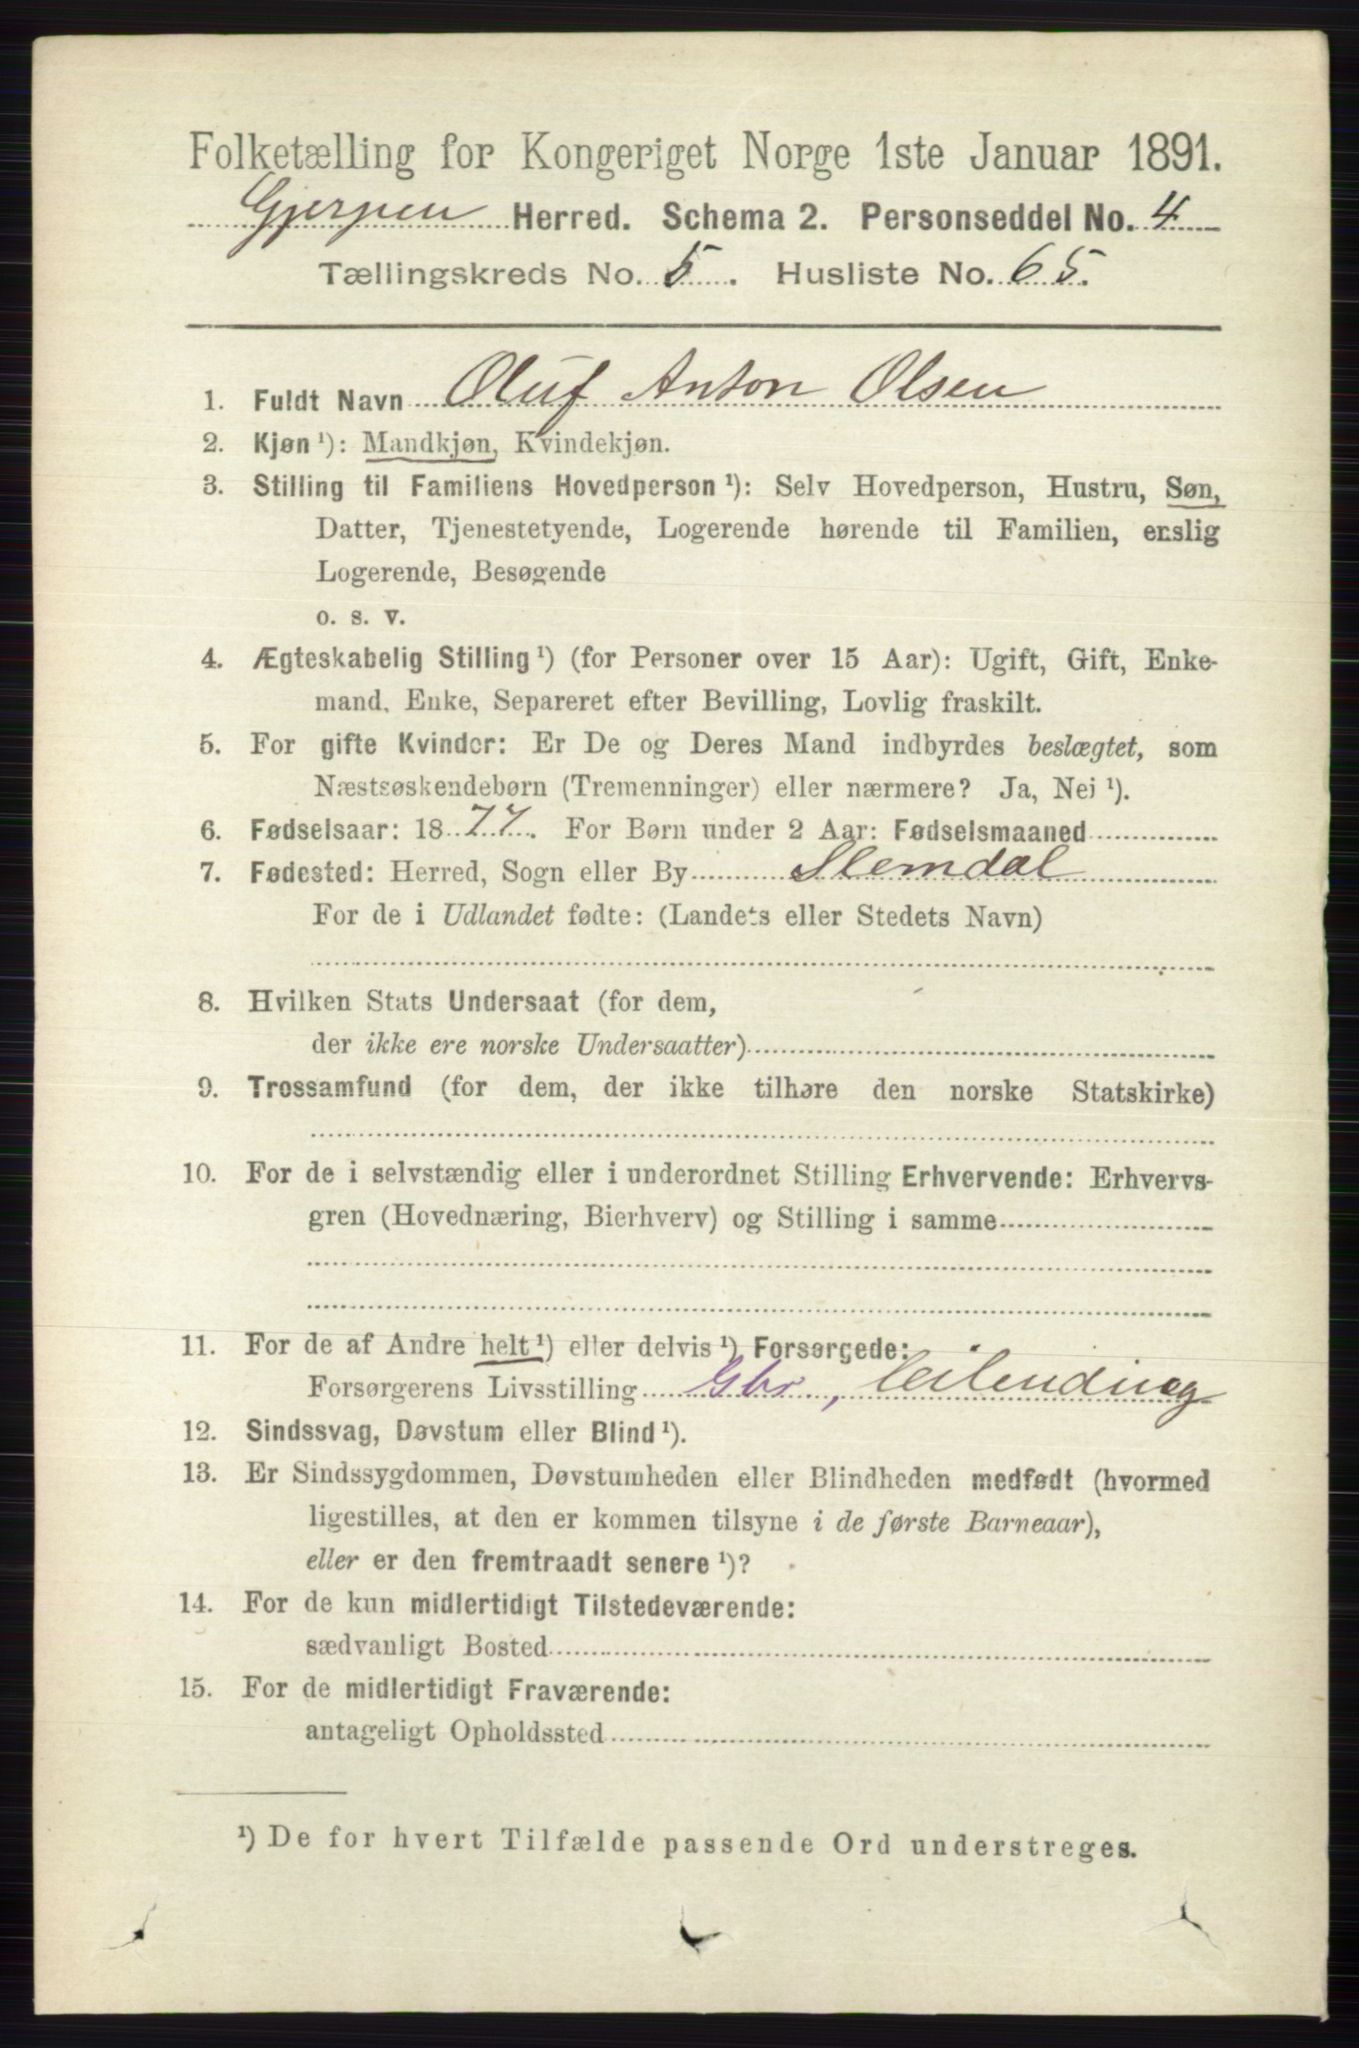 Folketælling for Kongeriget Norge 1ste Januar 1891.
Gjerpen Herred. Schema 2. Personseddel No. 4
Tællingskreds No. 5. Husliste No. 65.
1. Fuldt Navn Oluf Anton Olsen
2. Kjøn ¹): Mandkjøn, Kvindekjøn.
3. Stilling til Familiens Hovedperson ¹): Selv Hovedperson, Hustru, Søn,
Datter, Tjenestetyende, Logerende hørende til Familien, enslig
Logerende, Besøgende
o. s. v.
4. Ægteskabelig Stilling ¹) (for Personer over 15 Aar): Ugift, Gift, Enke-
mand, Enke, Separeret efter Bevilling, Lovlig fraskilt.
5. For gifte Kvinder: Er De og Deres Mand indbyrdes beslægtet, som
Næstsøskendebørn (Tremenninger) eller nærmere? Ja, Nei ¹).
6. Fødselsaar: 1877. For Børn under 2 Aar: Fødselsmaaned
7. Fødested: Herred, Sogn eller By Slemdal
For de i Udlandet fødte: (Landets eller Stedets Navn)
8. Hvilken Stats Undersaat (for dem,
der ikke ere norske Undersaatter)
9. Trossamfund (for dem, der ikke tilhøre den norske Statskirke)
10. For de i selvstændig eller i underordnet Stilling Erhvervende: Erhvervs-
gren (Hovednæring, Bierhverv) og Stilling i samme
11. For de af Andre helt ¹) eller delvis ¹) Forsørgede:
Forsørgerens Livsstilling Gbr, leilending
12. Sindssvag, Døvstum eller Blind ¹).
13. Er Sindssygdommen, Døvstumheden eller Blindheden medfødt (hvormed
ligestilles, at den er kommen tilsyne i de første Barneaar),
eller er den fremtraadt senere ¹)?
14. For de kun midlertidigt Tilstedeværende:
sædvanligt Bosted
15. For de midlertidigt Fraværende:
antageligt Opholdssted
¹) De for hvert Tilfælde passende Ord understreges.